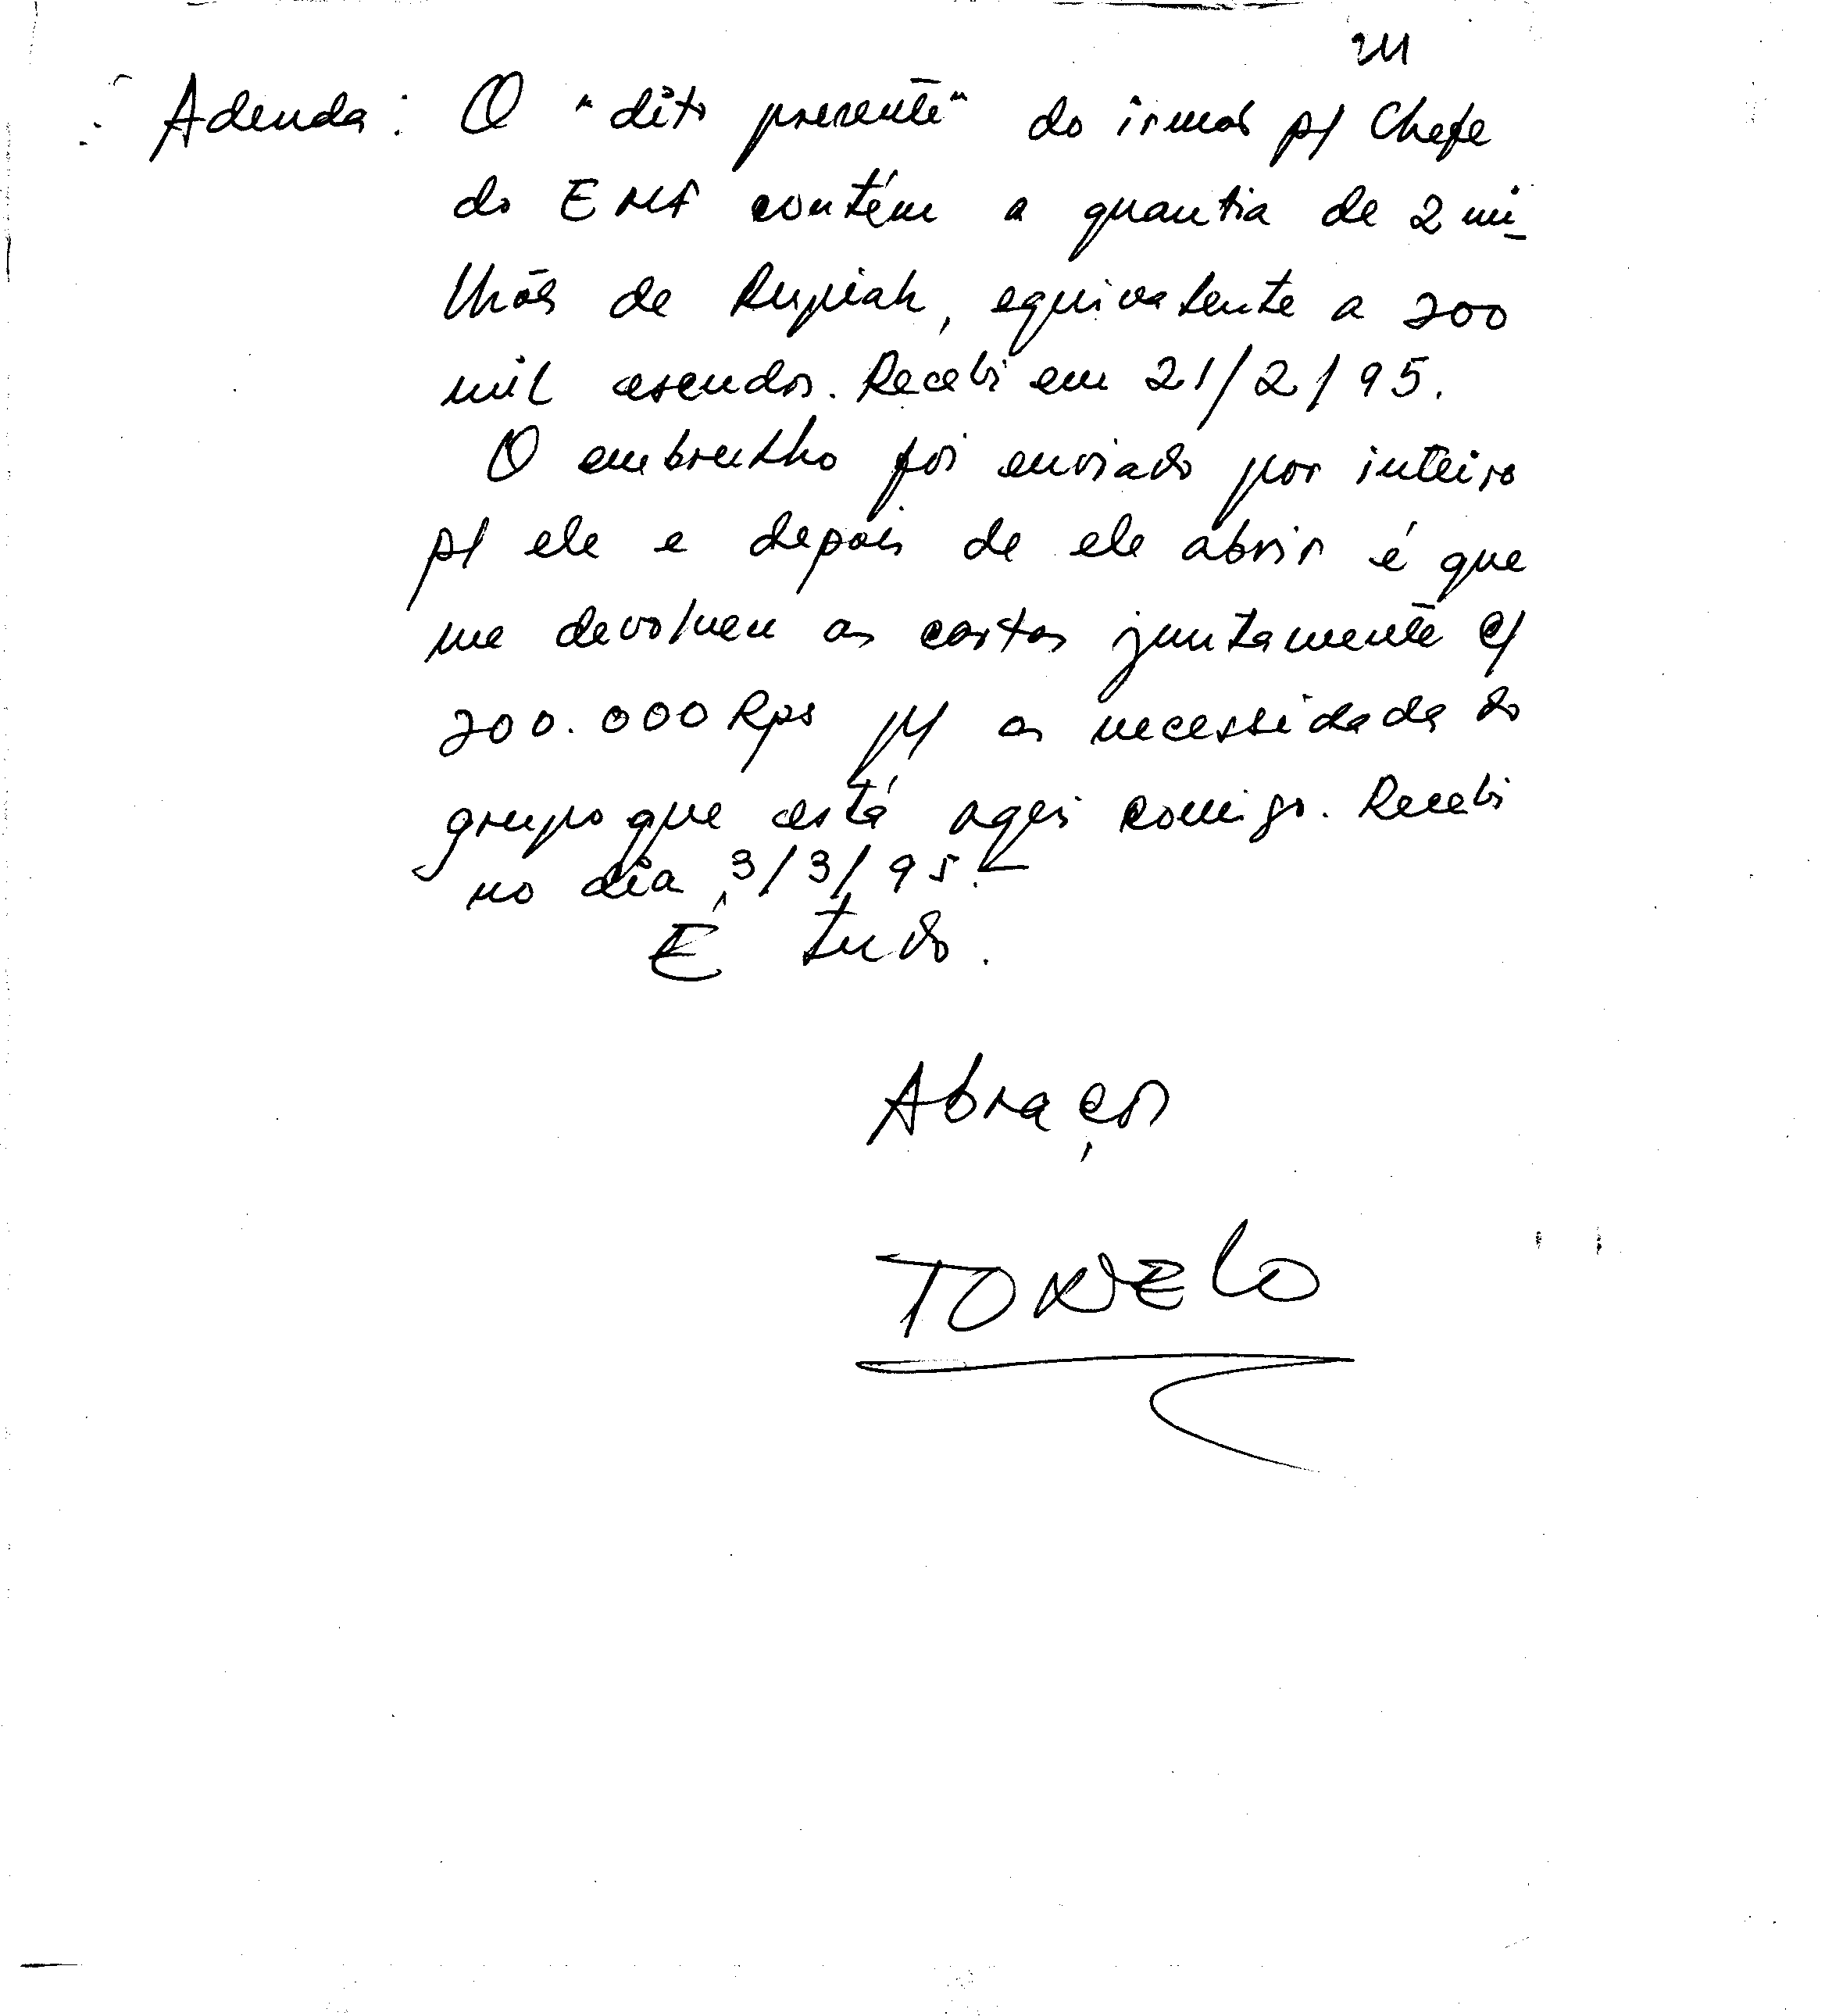 Adenda: O "dito presente" do irmão p/ Chefe
do EMF contém a quantia de 2 mi-
lhões de Rupiah, equivalente a 200
mil escudos. Recebi em 21/2/95.
O embrulho foi enviado por inteiro
p/ ele e depois de ele abrir é que
me devolveu as cartas juntamente c/
200.000 Rps p/ as necessidades do
grupo que está aqui comigo. Recebi
no dia 3/3/95.-
É tudo.
Abraços
TONELO